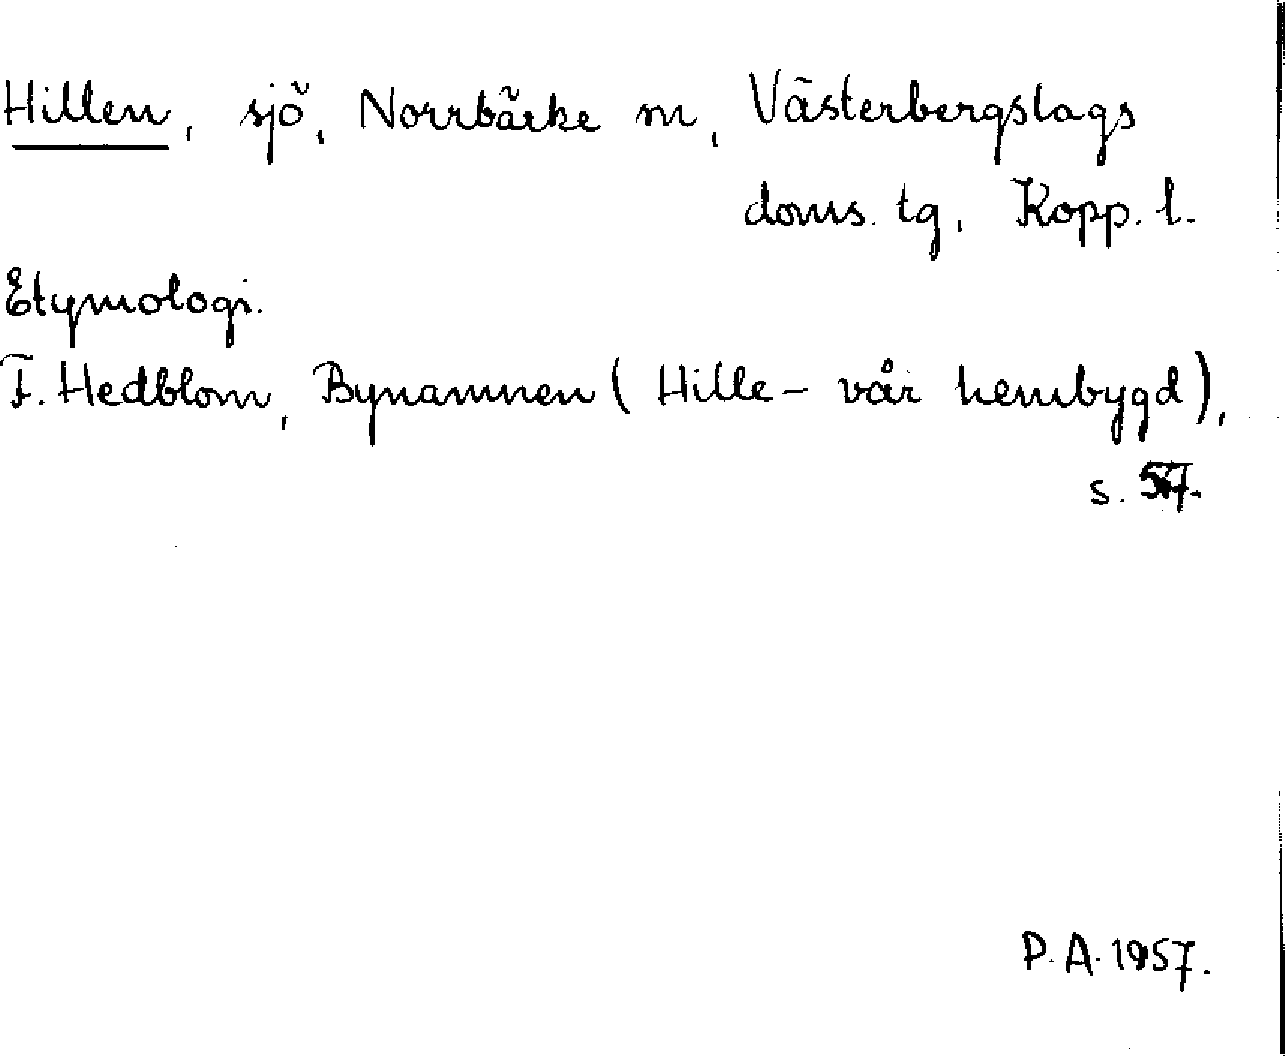 Hillen, sjö, Norrbärke sn, Västerbergslags
doms. tg, Kopp. l.
Etymologi.
F. Hedblom, Bynamnen (Hille – vår hembygd),
s. 57.
P. A. 1957.